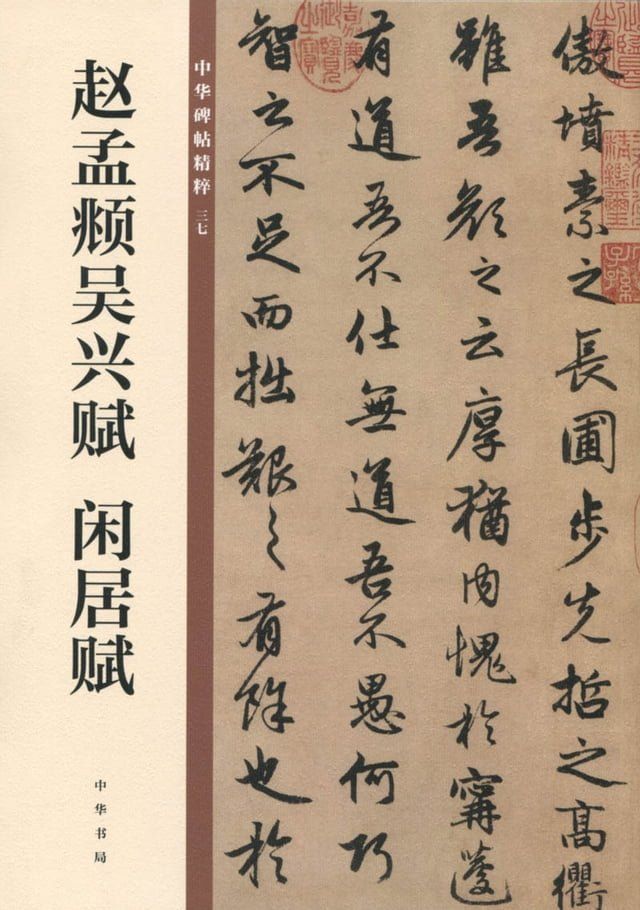 赵孟頫吴兴赋 闲居赋
中华书局
中华碑帖精粹 三七
傲墳素之長圃步先哲之高衢
雖吾顏之云厚猶內愧於甯蘧
有道吾不仕無道吾不愚何巧
智之不足而拙艱之有餘也於
嘉慶御覽之寶